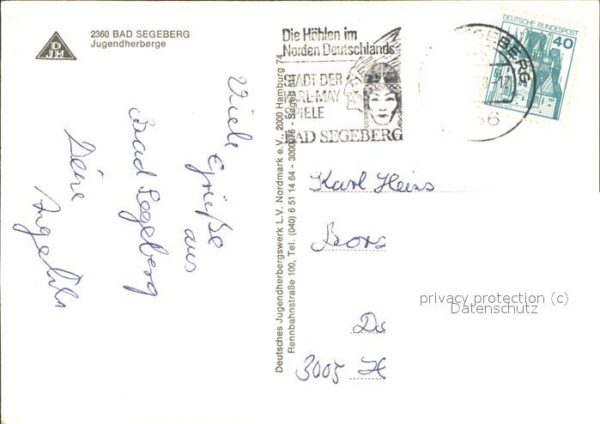 DJH
2360 BAD SEGEBERG
Jugendherberge
Die Höhlen im
Norden Deutschlands
STADT DER
KARL-MAY
SPIELE
BAD SEGEBERG
DEUTSCHE BUNDESPOST
40
Viele Grüße
aus
Bad Segeberg
Deine
Angelika
Deutsches Jugendherbergswerk L.V. Nordmark e.V., 2000 Hamburg 74
Rennbahnstraße 100, Tel. (040) 6 51 14 64 - 3000/76 - Segeb 5
Karl Heinz
3005 H
privacy protection (c)
Datenschutz